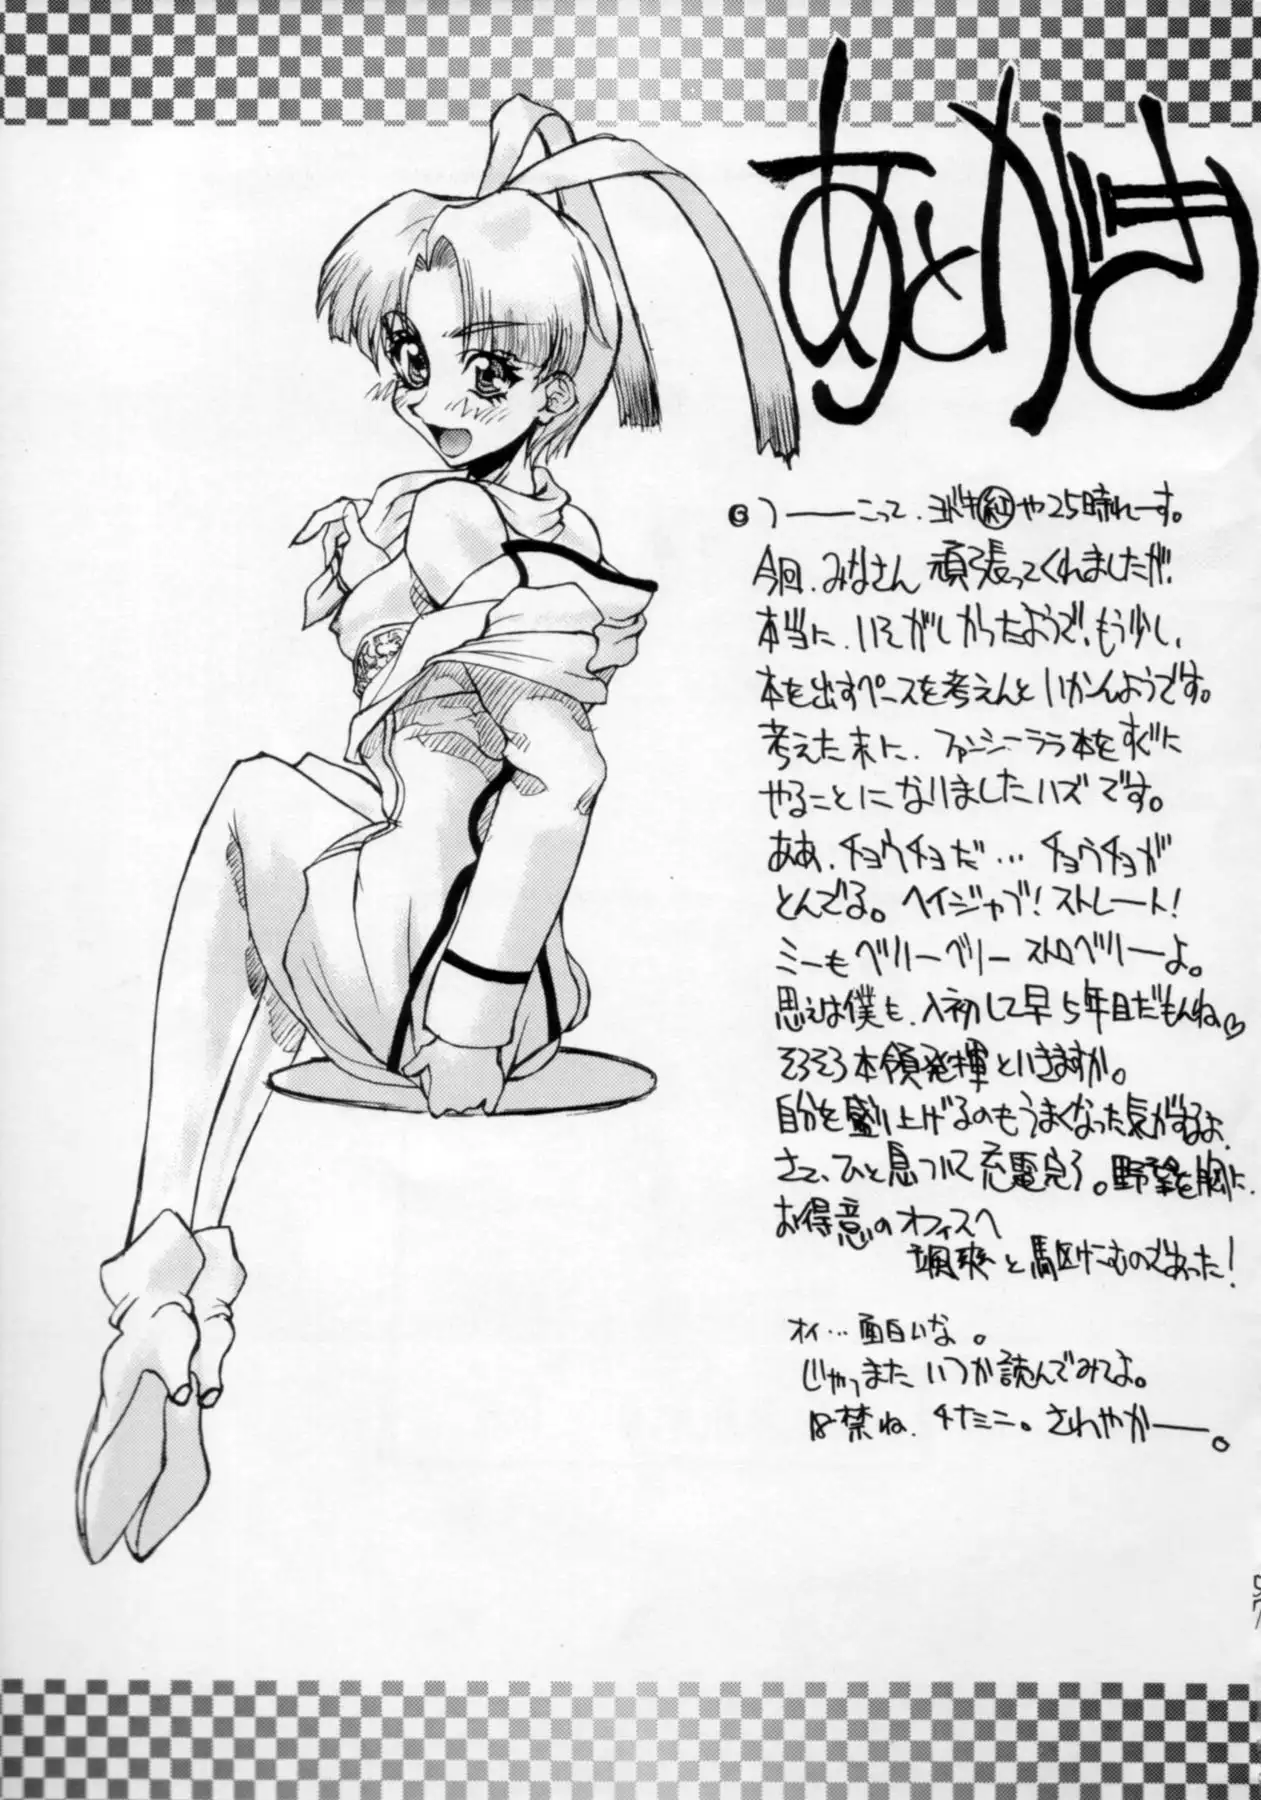 あとがき
つーーこって、ヨドキ紅や25時れーす。
今回、みなさん 頑張ってくれましたが、
本当に、いそがしかったようで、もう少し、
本を出すペースを考えんといかんようです。
考えた末に、ファンシーララ本をすぐに
やることになりましたハズです。
ああ、チョウチョだ… チョウチョが
とんでる。ヘイジャブ!ストレート!
ミーもベリーベリー ストロベリーよ。
思えば僕も、入初して早5年目だもんね♡
そろそろ本領発揮といきますか。
自分を盛り上げるのもうまくなった気がするよ。
さて、ひと息ついて充電完了。野望を胸に、
お得意のオフィスへ
颯爽と駆けこむのであった!
オイ…面白いな。
じゃっまた いつか読んでみてよ。
18禁ね、チナミニ。さわやかー。
97